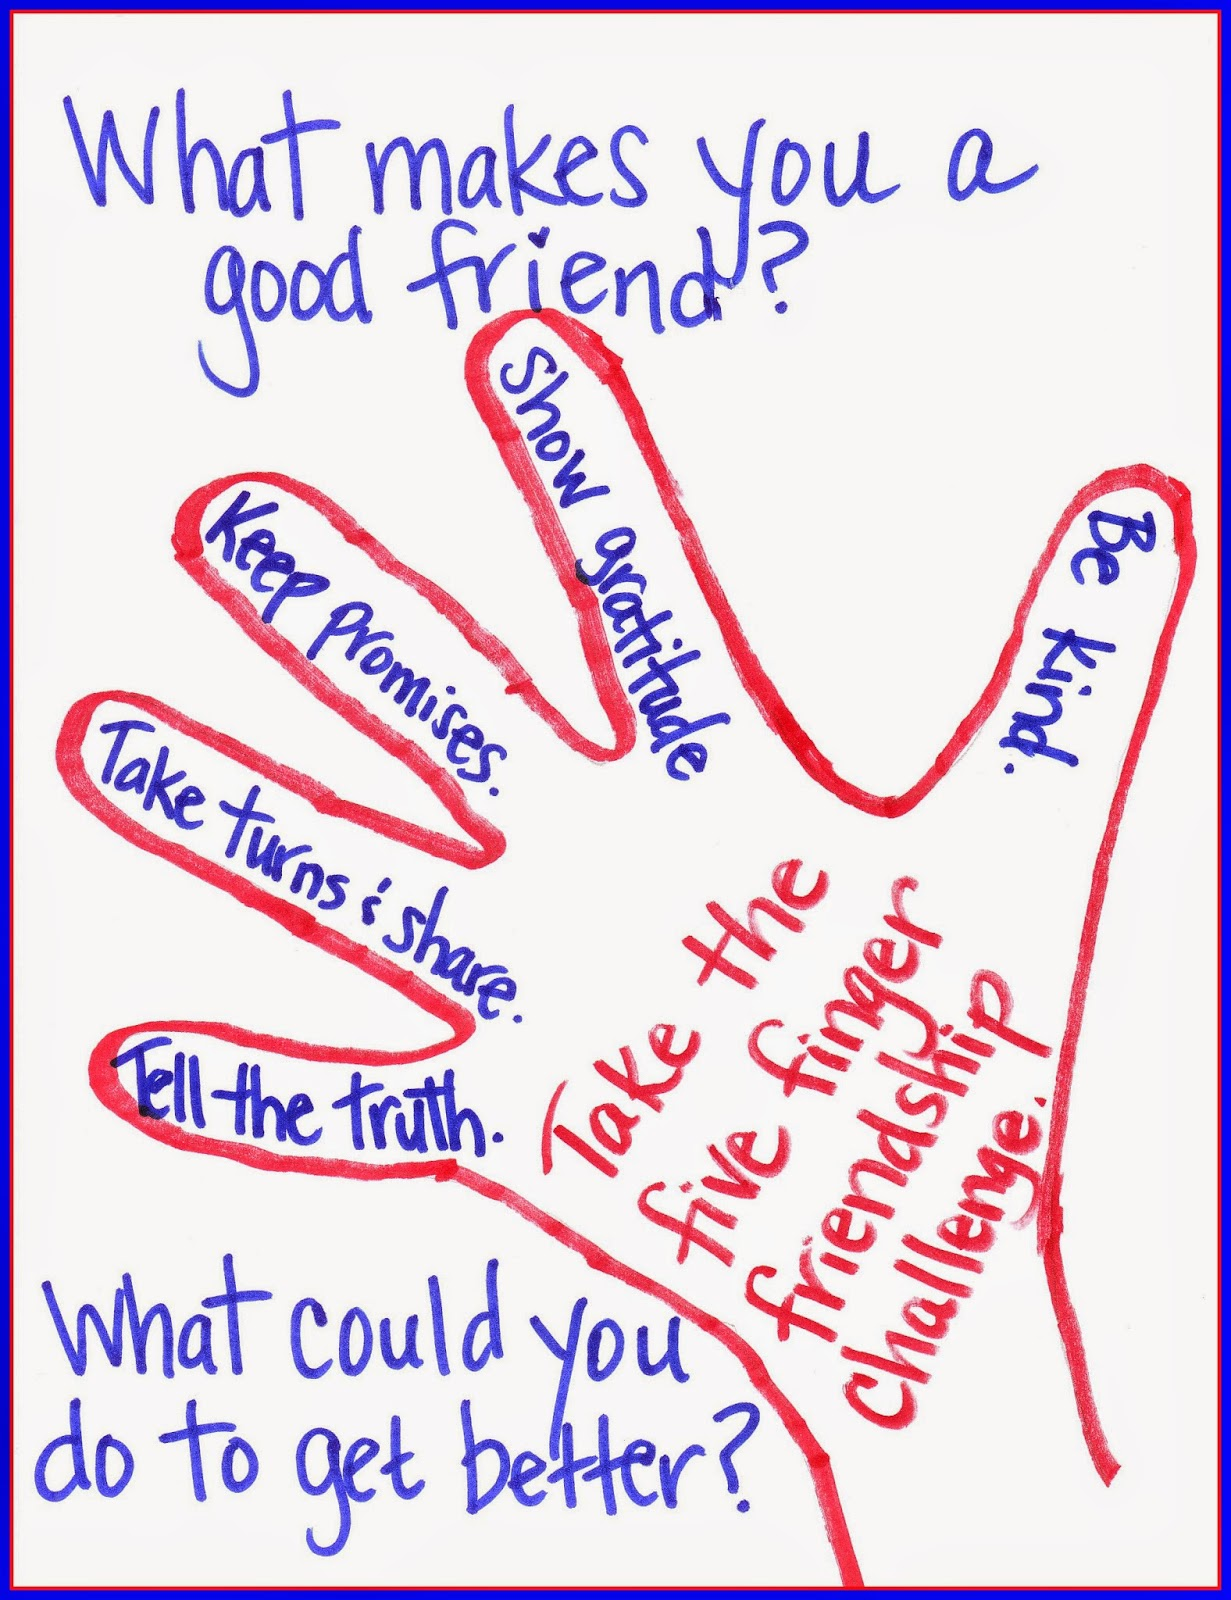 What makes you a
good friend?
Show gratitude
Be kind.
Keep promises.
Take turns & share.
Tell the truth.
Take the
five finger
friendship
challenge.
What could you
do to get better?